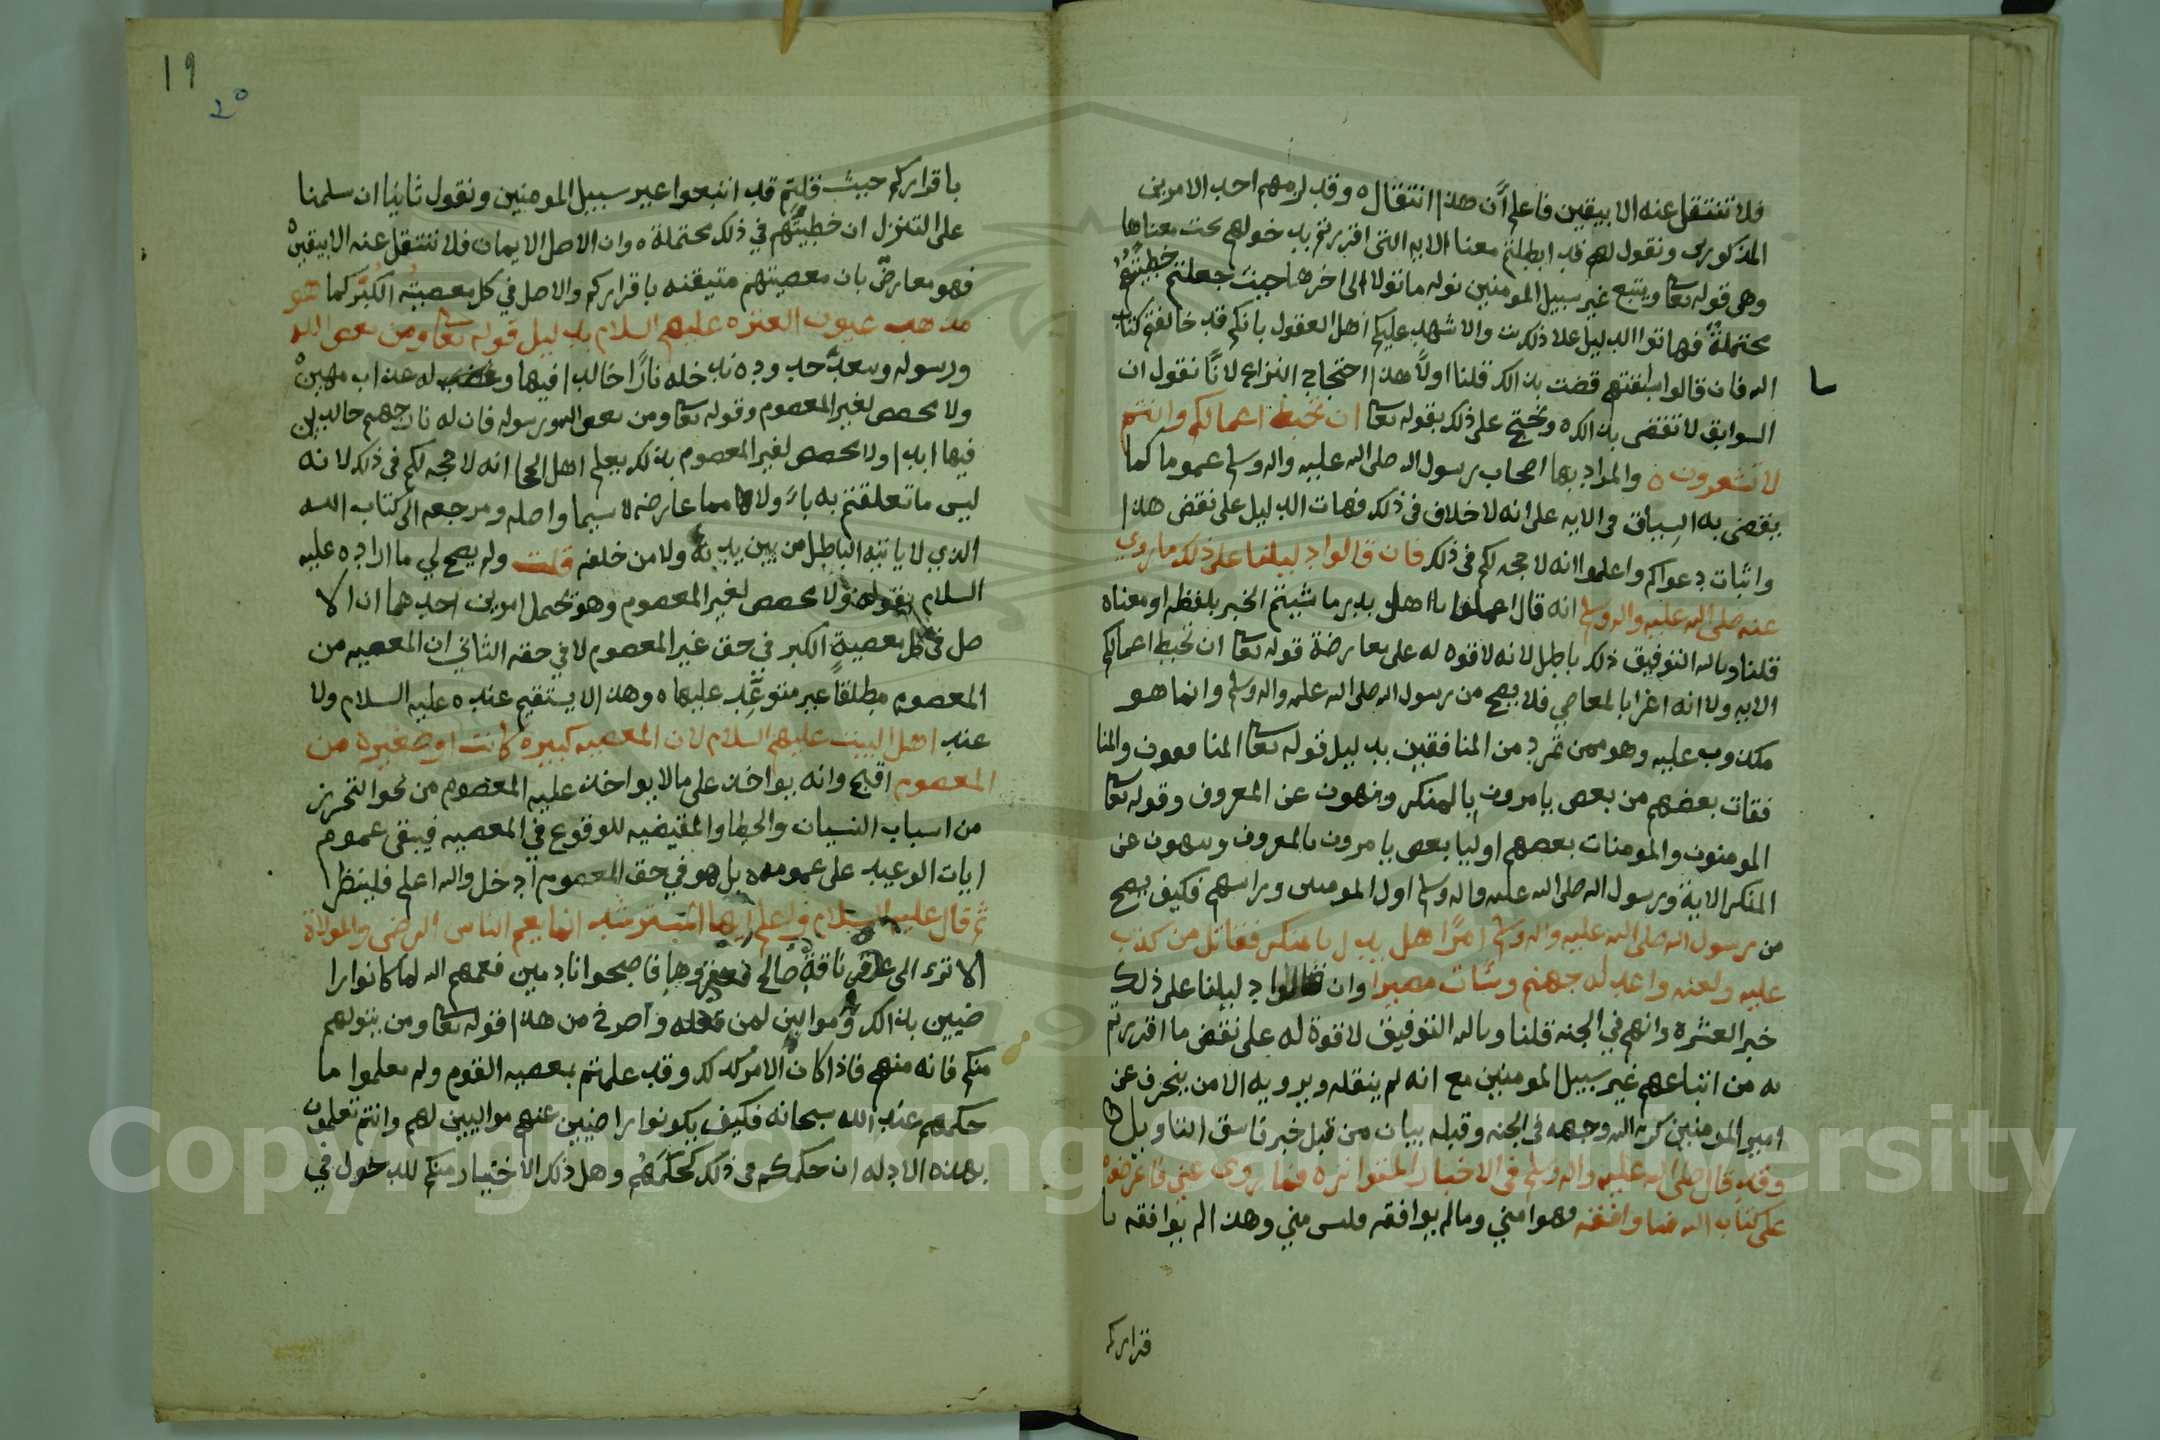 فلا تنتقل عنه الا بيقين فاعلم أن هذا انتقال ه وقد لزمهم احد الامرين
المذكورين ونقول لهم قد ابطلتم معنا الايه التى اقررتم بد خولهم تحت معناها
وهى قوله تعا ويتبع غير سبيل المومنين نوله ما تولا الى اخرها حيث جعلتم خطيتهم
محتملة فهاتوا الدليل علا ذلك والا شهد عليكم اهل العقول بانكم قد خالفتم كتاب
الله فان قالوا سابقتهم قضت بذالك قلنا اولًا هذا احتجاج النزاع لانّا نقول ان
السوابق لا تقضى بذالك ه ونحتج على ذلك بقوله تعا ان تحبط اعمالكم وانتم
لا تشعرون ه والمراد بها اصحاب رسول الله صلى الله عليه واله وسلم عموما كما
يقضى به السياق فى الايه على انه لا خلاف فى ذلك فهات الدليل على نقض هذا
واثبات دعواكم واعلموا انه لا حجه لكم فى ذلك فان قالوا دليلنا على ذلك ما روي
عنه صلى الله عليه واله وسلم انه قال اعملوا يا اهل بدر ما شيتم الخبر بلفظه او معناه
قلنا وبالله التوفيق ذلك باطل لانه لا قوه له على معارضة قوله تعا ان تحبط اعمالكم
الايه ولانه اغرا بالمعاصي فلا يصح من رسول الله صلى الله عليه واله وسلم وانما هو
مكذوب عليه وهو ممن تمرد من المنافقين بدليل قوله تعا المنافقون والمنا
فقات بعضهم من بعض يامرون بالمنكر وينهون عن المعروف وقوله تعا
المومنون والمومنات بعضهم اوليا بعض يامرون بالمعروف وينهون عن
المنكر الاية ورسول الله صلى الله عليه واله وسلم اول المومنين وراسهم فكيف يصح
من رسول الله صلى الله عليه واله وسلم امرًا هل بدر بالمنكر فقاتل من كذب
عليه ولعنه واعد له جهنم وسات مصيرا وان قالوا دليلنا على ذلك
خبر العشره وانهم في الجنه قلنا وبالله التوفيق لا قوة له على نقض ما اقررتم
به من اتباعهم غير سبيل المومنين مع انه لم ينقله ويرويه الا من ينحرف عن
امير المومنين كرم الله وجهه فى الجنه وقبله بيان من قبل خبر فاسق التاويل
وقد قال صلى الله عليه واله وسلم فى الاخبار المتواتره فما روى عني فاعرضوه
على كتاب الله فما وافقه فهوا مني وما لم يوافقه فليس مني وهذا لم يوافقه با
قراركم
19
20
باقراركم حيث قلتم قد اتبعوا غير سبيل المومنين ونقول ثانيا ان سلمنا
على التنزل ان خطيتهم في ذلك محتملة ه وان الاصل الايمان فلا تنتقل عنه الا بيقين
فهو معارض بان معصيتهم متيقنه باقراركم والاصل في كل معصيته الكبر كما هو
مذهب عيون العتره عليهم السلام بدليل قوله تعا ومن يعص الله
ورسوله ويتعد حدوده ندخله نارًا خالدا فيها وله عذاب مهين
ولا مخصص لغير المعصوم وقوله تعا ومن يعص الله ورسوله فان له نار جهنم خالدين
فيها ابدا ولا مخصص لغير المعصوم بذلك يعلم اهل الحجا انه لا حجه لكم فى ذلك لانه
ليس ما تعلقتم به باد ولا مما عارضه لا سيما واصله ومرجعه الى كتاب الله
الذي لا ياتيه الباطل من بين يديه ولا من خلفه قلت ولم يصح لي ما اراده عليه
السلام بقوله ولا مخصص لغير المعصوم وهو يحتمل امرين احدهما ان الا
صل فى كل معصية الكبر في حق غير المعصوم لا في حقه الثاني ان المعصيه من
المعصوم مطلقًا غير متوعّد عليها ه وهذا لا يستقيم عنده عليه السلام ولا
عند اهل البيت عليهم السلام لان المعصيه كبيره كانت او صغيره من
المعصوم اقبح وانه يواخذ على ما لا يواخذ عليه المعصوم من نحو التحرز
من اسباب النسيان والخطا والمقيضيه للوقوع في المعصيه فيبقى عموم
ايات الوعيد على عمومه بل هو في حق المعصوم ادخل والله اعلم فلينظر
ثم قال عليه السلام واعلم ايها المسترشد انما يعم الناس الرضى والموالاة
الا ترء الى عاقر ناقة صالح فعقروها فاصبحوا نادمين فعمهم الله لما كانوا را
ضيين بذالك وموالين لمن فعله واصرخ من هذا قوله تعا ومن يتولهم
منكم فانه منهم فاذا كان الامر كذلك وقد علمتم بمعصيه القوم ولم تعلموا ما
حكمهم عند الله سبحانه فكيف يكونوا راضيين عنهم مواليين لهم وانتم تعلمون
بهذه الادله ان حكمكم فى ذلك كحكمهم وهل ذلك الا اختيار منكم للدخول في
Copyright © King Saud University